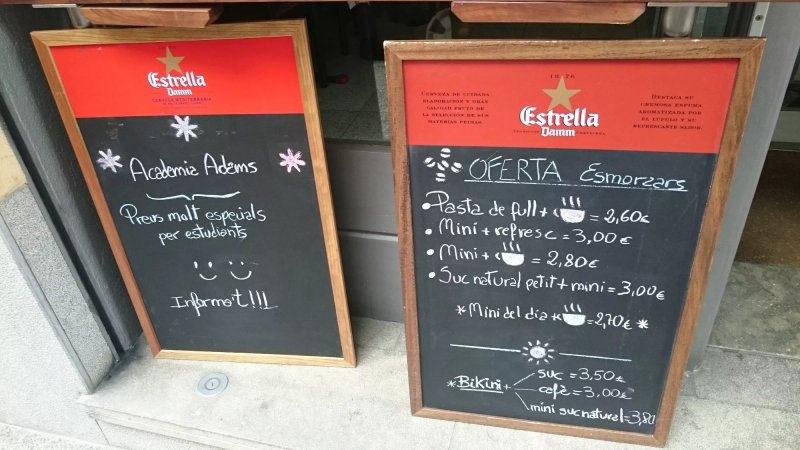 Estrella
Damm
Academia Adams
Preus molt especials
per estudiants
Informa't!!!
1876
Cerveza de cuidada
elaboración y gran
calidad fruto de
la selección de sus
materias primas.
Estrella
Damm
Destaca su
cremosa espuma
aromatizada por
el lúpulo y su
refrescante sabor.
OFERTA Esmorzars
• Pasta de full + = 2,60€
• Mini + refresc = 3,00€
• Mini + = 2,80€
• Suc natural petit + mini = 3,00€
* Mini del dia + = 2,70€ *
* Bikini +
suc = 3,50€
cafè = 3,00€
mini suc natural = 3,80